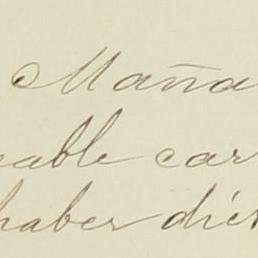 Maña
eable car
haber dié